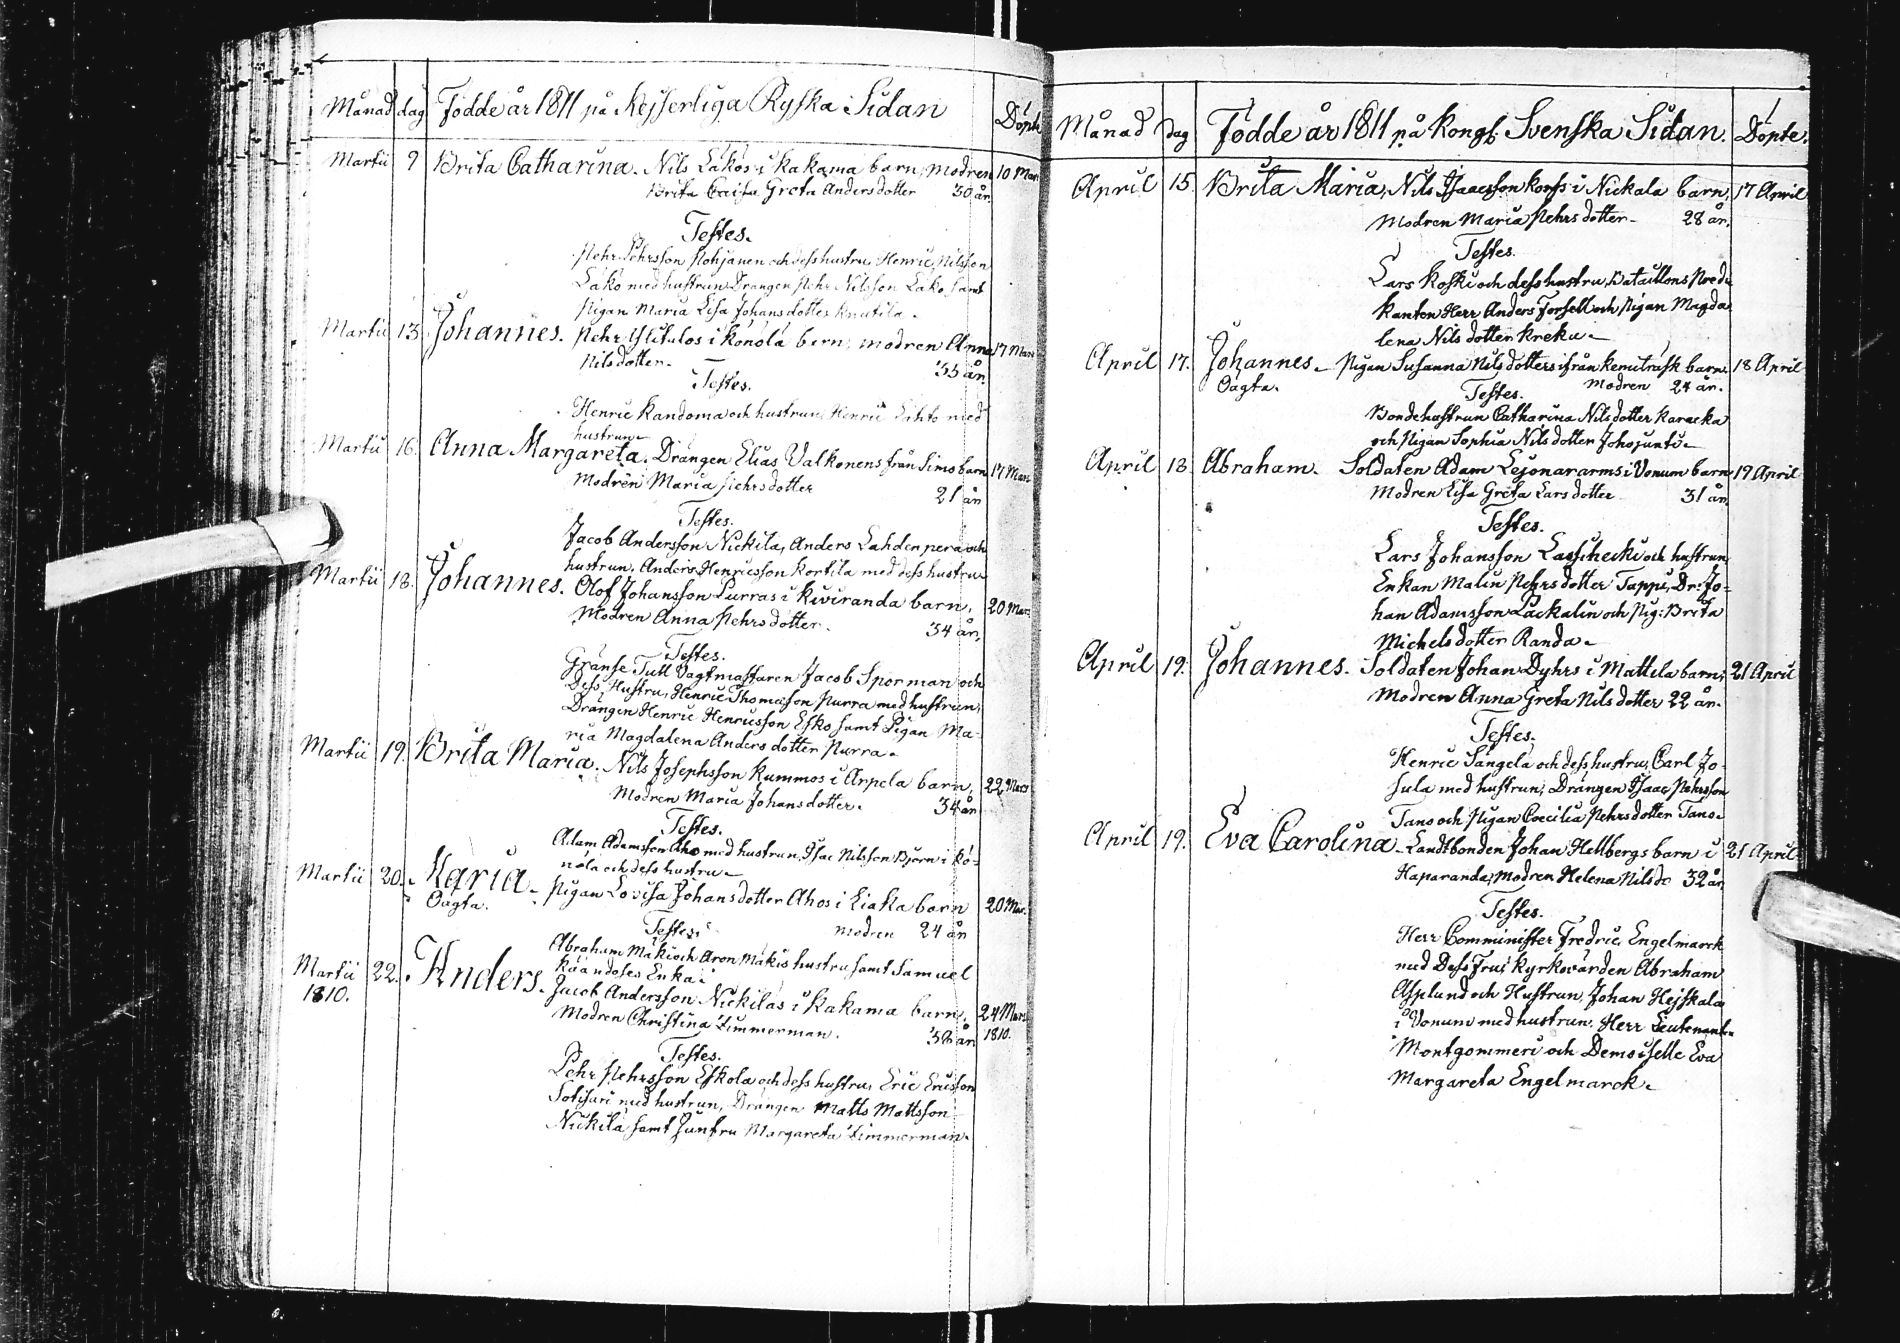 Månad dag Födde år 1811 på Kejserliga Ryska Sidan Döpte
Martii 9 Brita Catharina. Nils Lakos i Kakama barn, modren 10 Mar
Brita Caisa Greta Andersdotter 30 år.
Testes.
Pehr Pehrsson Pohjanen och dess hustru, Henric Nilsson
Lako med hustrun, Drängen Pehr Nilsson Lako samt
Pigan Maria Lisa Johansdotter Knutila.
Martii 13. Johannes. Pehr Ylitulos i Könölä barn, modren Anna 17 Mars
Nilsdotter. 33 år.
Testes.
Henric Kandoma och hustrun, Henric Lahto med
hustrun.
Martii 16. Anna Margareta. Drängen Elias Valkonens från Simo barn 17 Mars
Modren Maria Pehrsdotter 21 år
Testes.
Jacob Andersson Nickila, Anders Lahdenpera och
hustrun, Anders Henricsson Kortila med dess hustru
Martii 18. Johannes. Olof Johansson Lurras i Kiviranda barn, 20 Mar.
Modren Anna Pehrsdotter. 34 år.
Testes.
Gränse Tull Vagtmästaren Jacob Sporman och
Dess Hustru, Henric Thomasson Purra med hustrun,
Drängen Henric Henricsson Esko samt Pigan Ma-
ria Magdalena Andersdotter Purra.
Martii 19. Brita Maria. Nils Josephsson Kummos i Arpela barn, 22 Mars
Modren Maria Johansdotter. 34 år
Testes.
Adam Adamsson Aho med hustrun, Isac Nilsson Björn i Kö-
nölä och dess hustru.
Martii 20. Maria. Pigan Lovisa Johansdotter Ahos i Liaka barn 20 Mar.
Oägta. modren 24 år
Testes:
Abraham Mäki och Aron Mäkis hustru samt Samuel
Käändoses Enka:
Martii 22. Anders. Jacob Andersson Nickilas i Kakama barn, 24 Mars
1810. Modren Christina Zimmerman. 38 år 1810.
Testes.
Pehr Pehrsson Eskola och dess hustru, Eric Ericsson
Sotisari med hustrun, Drängen Matts Mattsson
Nickila samt Jungfru Margareta Zimmerman.
Månad Dag Födde år 1811 på Kongl. Svenska Sidan. Döpte.
April 15. Brita Maria, Nils Isaacsson Korfs i Nickala barn, 17 April
Modren Maria Pehrsdotter. 28 år.
Testes.
Lars Koski och dess hustru, Bataillons Predi
kanten Herr Anders Forsell och Pigan Magda
lena Nilsdotter Kreku.
April 17. Johannes. Pigan Susanna Nilsdotters ifrån Kemiträsk barn. 18 April
Oägta. Modren 24 år.
Testes.
Bondehustrun Catharina Nilsdotter Karacka
och Pigan Sophia Nilsdotter Johojunti.
April 18. Abraham. Soldaten Adam Lejonararms i Vonum barn 19 April
Modren Lisa Greta Larsdotter 31 år.
Testes.
Lars Johansson Laschecki och hustrun
Enkan Malin Pehrsdotter Tappu, Dr: Jo-
han Adamsson Lackalin och Pig: Brita
Michelsdotter Randa.
April 19. Johannes. Soldaten Johan Dyhrs i Mattila barn, 21 April
Modren Anna Greta Nilsdotter 22 år.
Testes.
Henric Sangela och dess hustru, Carl Jo-
sula med hustrun, Drängen Isaac Pehrsson
Tano och Pigan Coecilia Pehrsdotter Tano.
April 19. Eva Carolina. Landtbonden Johan Hellbergs barn i 21 April
Haparanda, modren Helena Nilsdr 32 år
Testes.
Herr Comminister Fredric Engelmarck
med Dess Fru, Kyrkovärden Abraham
Asplund och Hustrun, Johan Hejskala
i Vonum med hustrun. Herr Lieutenanten
Montgommeri och Demoiselle Eva
Margareta Engelmarck.